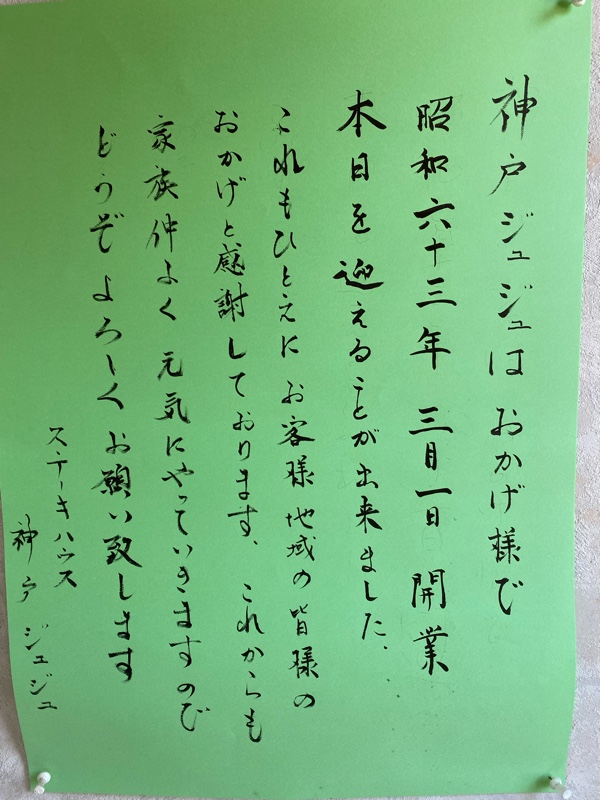 神戸ジュジュは おかげ様で
昭和六十三年 三月一日 開業
本日を迎えることが出来ました。
これもひとえに お客様 地域の皆様の
おかげと感謝しております。 これからも
家族仲よく 元気にやっていきますので
どうぞ よろしく お願い致します
ステーキハウス
神戸 ジュジュ